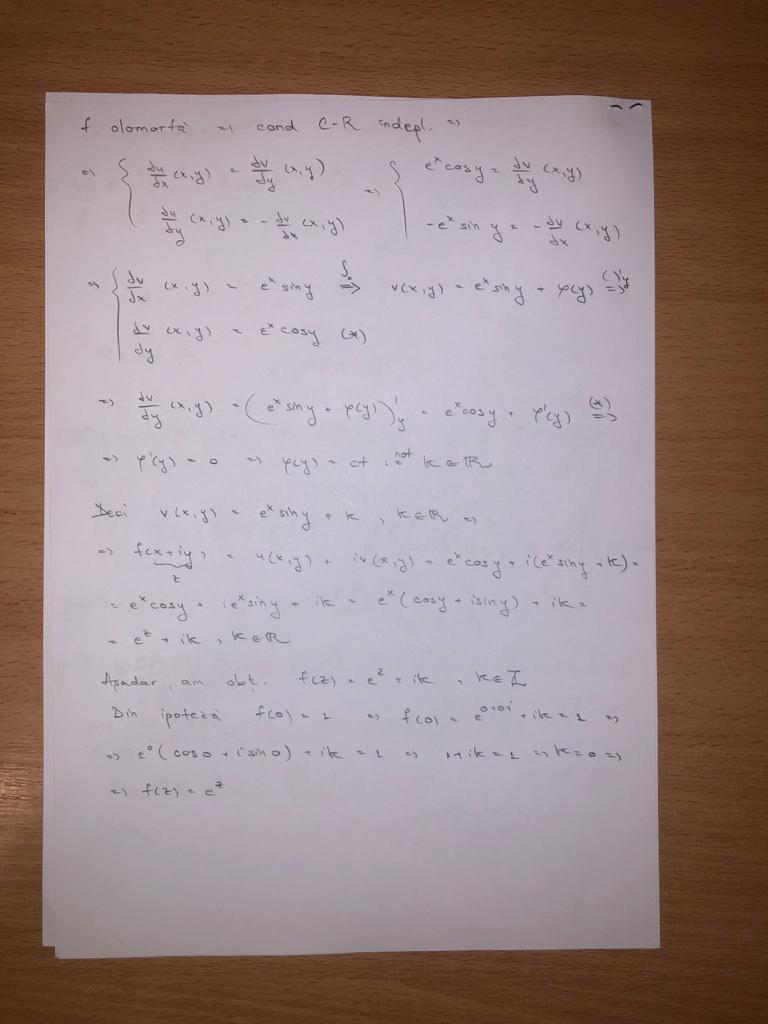 f olomorfă => cond C-R indepl. =>
=> { du/dx (x,y) = dv/dy (x,y) => { e^x cos y = dv/dy (x,y)
du/dy (x,y) = - dv/dx (x,y) -e^x sin y = - dv/dx (x,y)
=> { dv/dx (x,y) = e^x sin y ∫x => v(x,y) = e^x sin y + φ(y) ( )'y =>
dv/dy (x,y) = e^x cos y (*)
=> dv/dy (x,y) = (e^x sin y + φ(y))'y = e^x cos y + φ'(y) (*) =>
=> φ'(y) = 0 => φ(y) = ct not = k ∈ ℝ
Deci v(x,y) = e^x sin y + k , k ∈ ℝ =>
=> f(x+iy) = u(x,y) + iv(x,y) = e^x cos y + i(e^x sin y + k) =
z
= e^x cos y + i e^x sin y + ik = e^x (cos y + i sin y) + ik =
= e^z + ik , k ∈ ℝ
Așadar, am obț. f(z) = e^z + ik , k ∈ ℤ
Din ipoteză f(0) = 1 => f(0) = e^{0+0i} + ik = 1 =>
=> e^0 (cos 0 + i sin 0) + ik = 1 => 1 + ik = 1 => k = 0 =>
=> f(z) = e^z